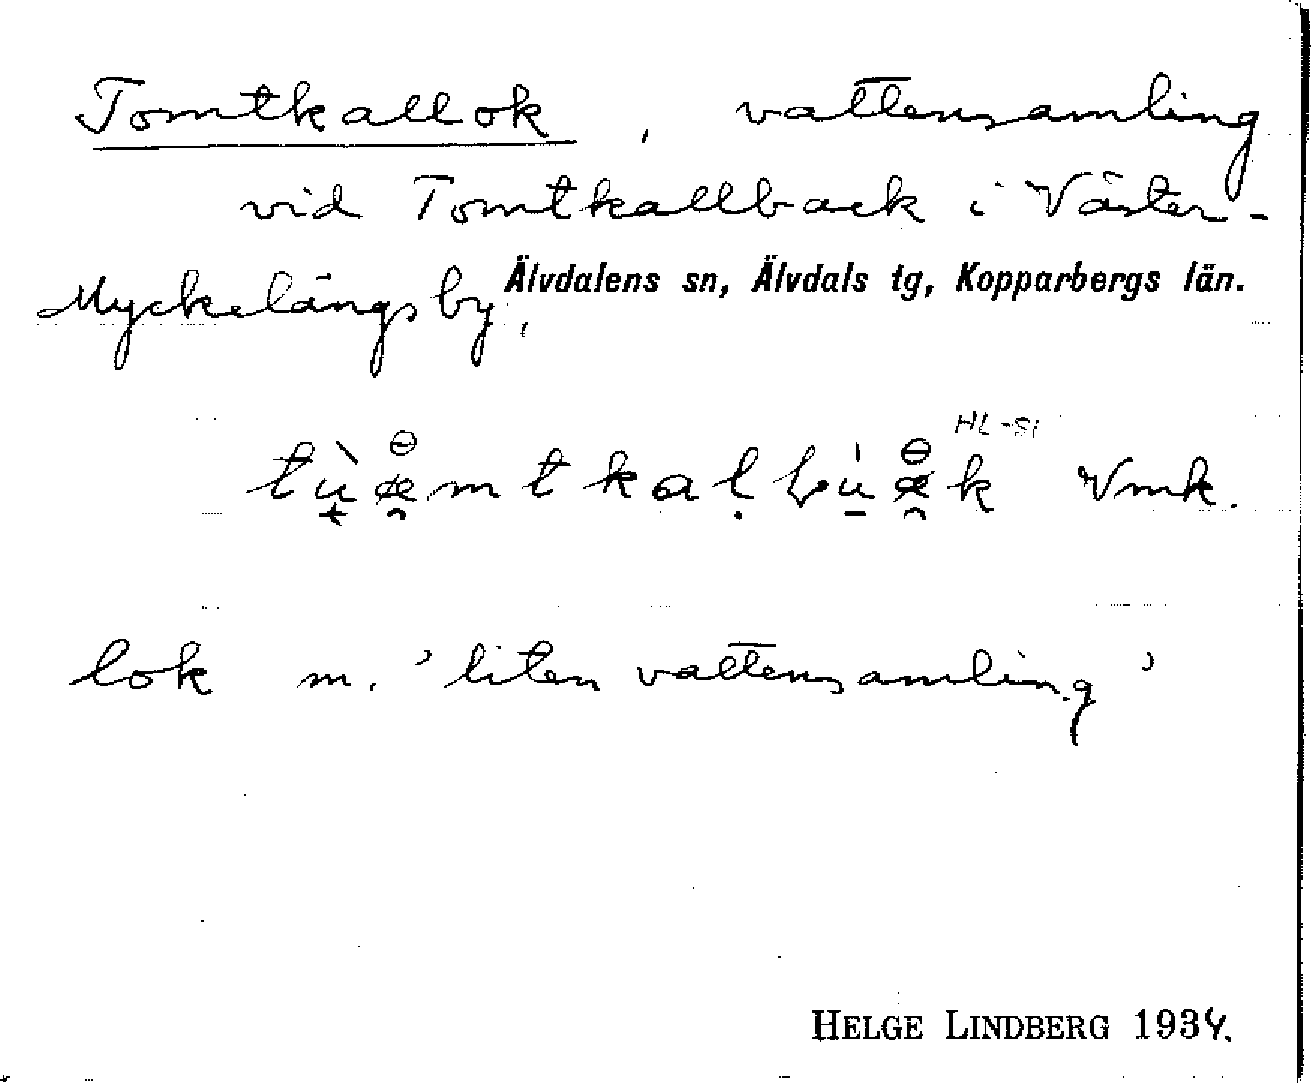 Tomtkallok, vattensamling
vid Tomtkallback i Väster-
Myckelängsby, Älvdalens sn, Älvdals tg, Kopparbergs län.
HL-51
Vmk.
lok m. 'liten vattensamling'
HELGE LINDBERG 1934.